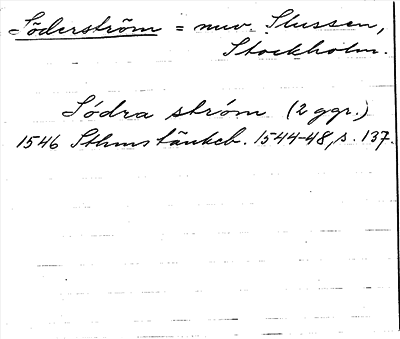 Söderström = nuv. Slussen,
Stockholm.
Södra ström (2 ggr.)
1546 Sthms tänkeb. 1544-48, s. 137.